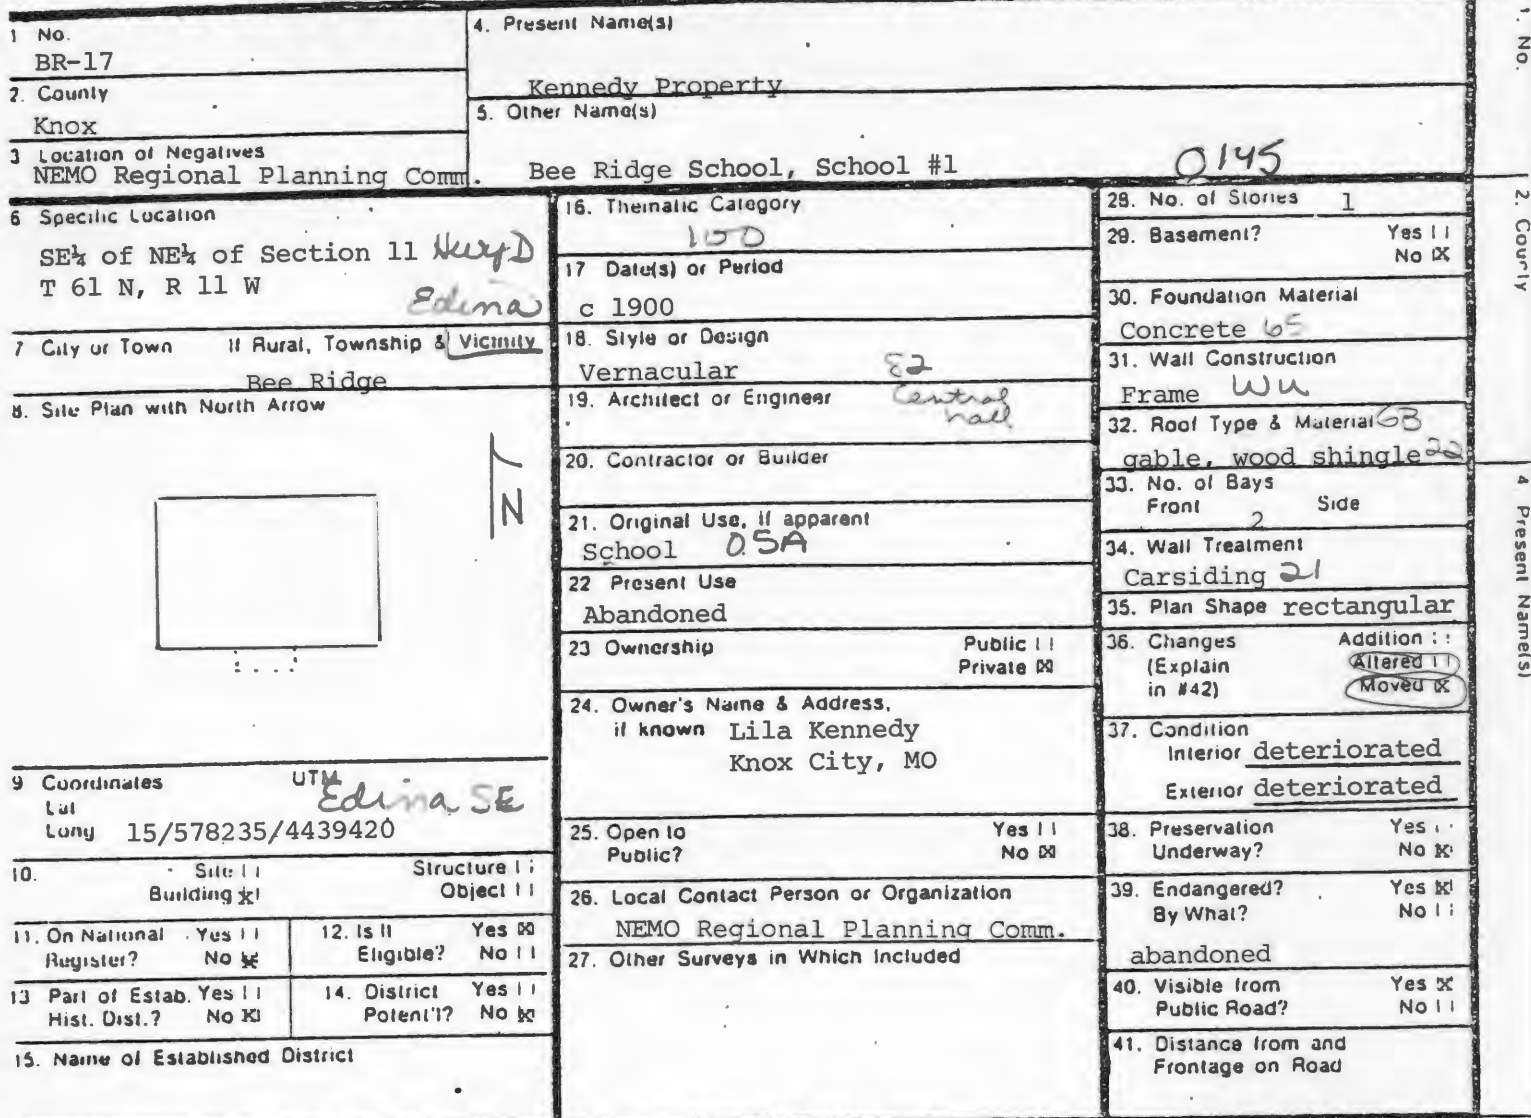 1 No.
BR-17
2. County
Knox
3 Location of Negatives
NEMO Regional Planning Comm.
4. Present Name(s)
Kennedy Property
5. Other Name(s)
Bee Ridge School, School #1
0145
6 Specific Location
SE¼ of NE¼ of Section 11 Hwy D
T 61 N, R 11 W
Edina
7 City or Town If Rural, Township & Vicinity
Bee Ridge
8. Site Plan with North Arrow
N
9 Coordinates UTM
Lat
Edina SE
Long 15/578235/4439420
10. Site Structure
Building x Object
11. On National Yes
Register? No x
12. Is It Yes x
Eligible? No
13 Part of Estab. Yes
Hist. Dist.? No x
14. District Yes
Potent'l? No x
15. Name of Established District
16. Thematic Category
100
17 Date(s) or Period
c 1900
18. Style or Design
Vernacular 82
19. Architect or Engineer Central
hall
20. Contractor or Builder
21. Original Use, if apparent
School 05A
22 Present Use
Abandoned
23 Ownership Public
Private x
24. Owner's Name & Address,
if known Lila Kennedy
Knox City, MO
25. Open to Yes
Public? No x
26. Local Contact Person or Organization
NEMO Regional Planning Comm.
27. Other Surveys in Which Included
28. No. of Stories 1
29. Basement? Yes
No x
30. Foundation Material
Concrete 65
31. Wall Construction
Frame
32. Roof Type & Material GB
gable, wood shingle 22
33. No. of Bays
Front 2 Side
34. Wall Treatment
Carsiding 21
35. Plan Shape rectangular
36. Changes Addition
(Explain Altered
in #42) Moved x
37. Condition
Interior deteriorated
Exterior deteriorated
38. Preservation Yes
Underway? No x
39. Endangered? Yes x
By What? No
abandoned
40. Visible from Yes x
Public Road? No
41. Distance from and
Frontage on Road
1. No.
2. County
4. Present Name(s)